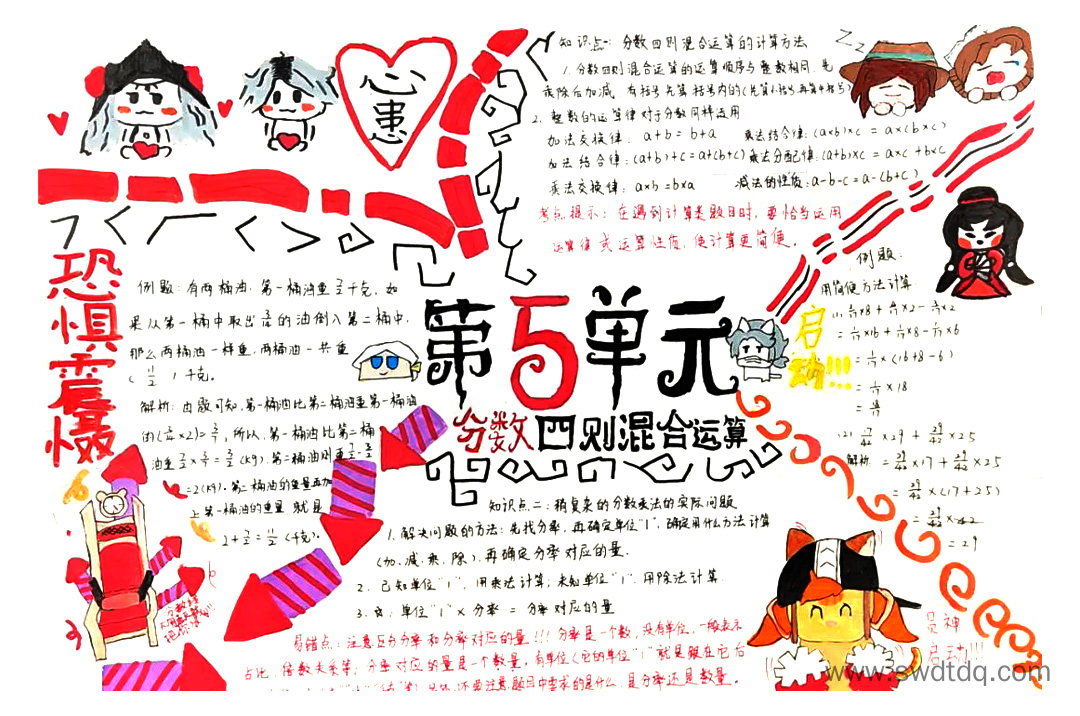 心患
知识点一：分数四则混合运算的计算方法
1. 分数四则混合运算的运算顺序与整数相同，先
乘除后加减，有括号先算括号内的
2. 整数的运算律对于分数同样适用
加法交换律：a+b=b+a 乘法结合律：(a×b)×c = a×(b×c)
加法结合律：(a+b)+c=a+(b+c) 乘法分配律：(a+b)×c = a×c+b×c
乘法交换律：a×b=b×a 减法的性质：a-b-c=a-(b+c)
考点提示：在遇到计算类题目时，要恰当运用
运算律或运算性质，使计算更简便。
恐惧震慑
例题：有两桶油，第一桶油重 千克，如
果从第一桶中取出 的油倒入第二桶中，
那么两桶油一样重，两桶油一共重
( 11/2 ) 千克。
解析：由题可知，第一桶油比第二桶油重第一桶油
的 所以，第一桶油比第二桶
油重 (kg)，第二桶油则重
=2(kg)。第二桶油的重量再加
上第一桶油的重量，就是
2+7/2=11/2 (千克)。
第5单元
分数四则混合运算
例题：
用简便方法计算
(1)
×(16+8-6)
×18
(2) ×29 + 29/42×25
解析 = 29/42×17 + 29/42×25
= 29/42×(17+25)
= 29/42×42
=29
启动!!!
知识点二：稍复杂的分数乘法的实际问题
1. 解决问题的方法：先找分率，再确定单位"1"，确定用什么方法计算
(加、减、乘、除)，再确定分率对应的量。
2. 已知单位"1"，用乘法计算；未知单位"1"，用除法计算
3. 单位"1" × 分率 = 分率对应的量
易错点：注意区分分率和分率对应的量!!! 分率是一个数，没有单位，一般表示
占比，倍数关系等；分率对应的量是一个数量，有单位（它的单位"1"就是跟在它后
还要注意题目中要求的是什么，是分率还是数量。
员神
启动!!!
www.swdtdq.com